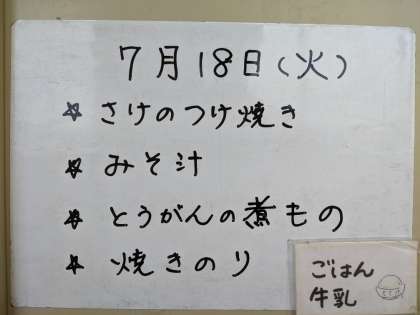 7月18日(火)
☆ さけのつけ焼き
☆ みそ汁
☆ とうがんの煮もの
☆ 焼きのり
ごはん
牛乳